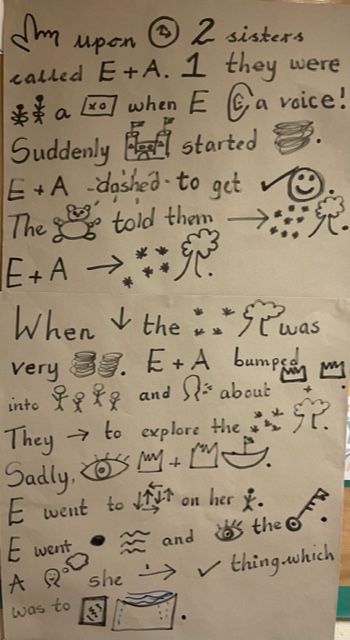 upon 2 sisters
called E + A. 1 they were
a xo when E a voice!
Suddenly started .
E + A - dashed - to get .
The told them →
E + A → .
When ↓ the was
very . E + A bumped
into and about .
They → to explore the .
Sadly, + .
E went to ↓↑↓↑ on her .
E went and the .
A she → ✓ thing. which
was to .